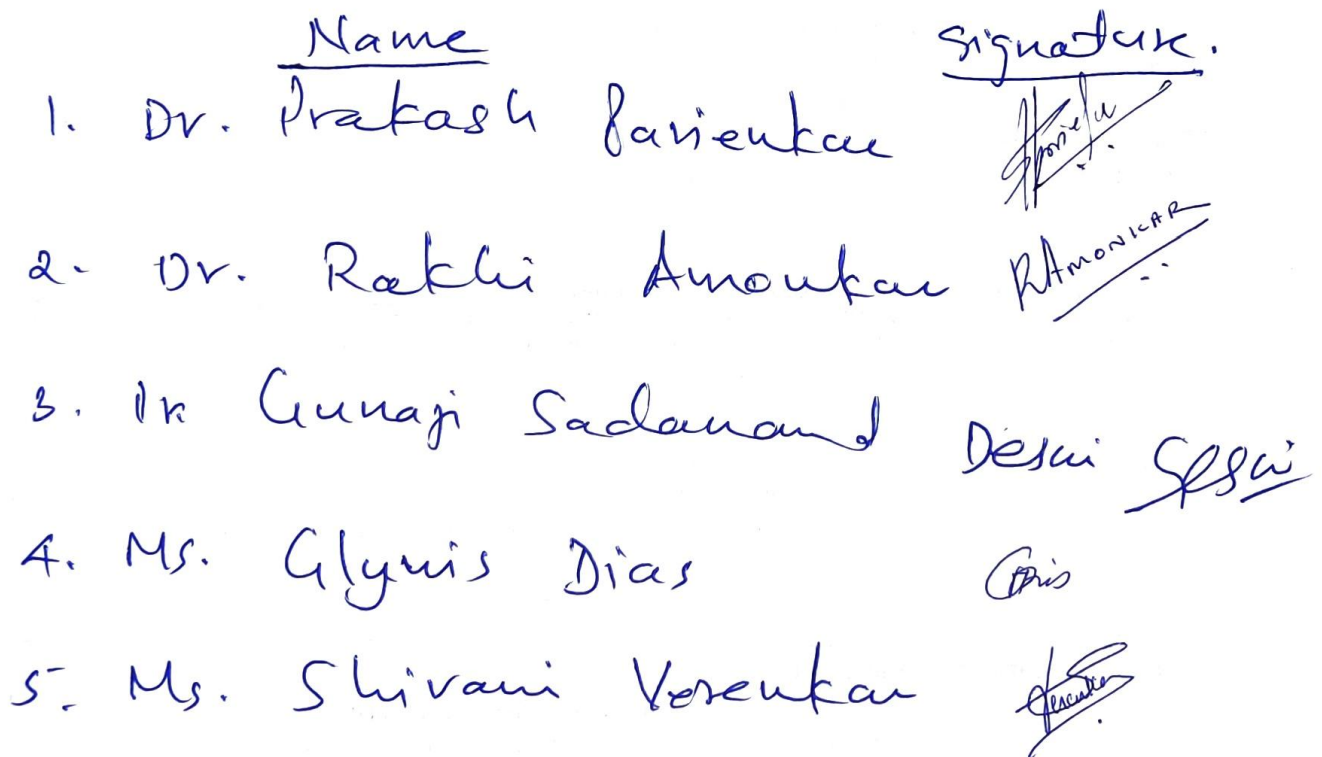 Name Signature.
1. Dr. Prakash Parienkar
2. Dr. Rakhi Amonkar RAmonkar
3. Dr Gunaji Sadanand Desai
4. Ms. Glynis Dias
5. Ms. Shivani Verenkar